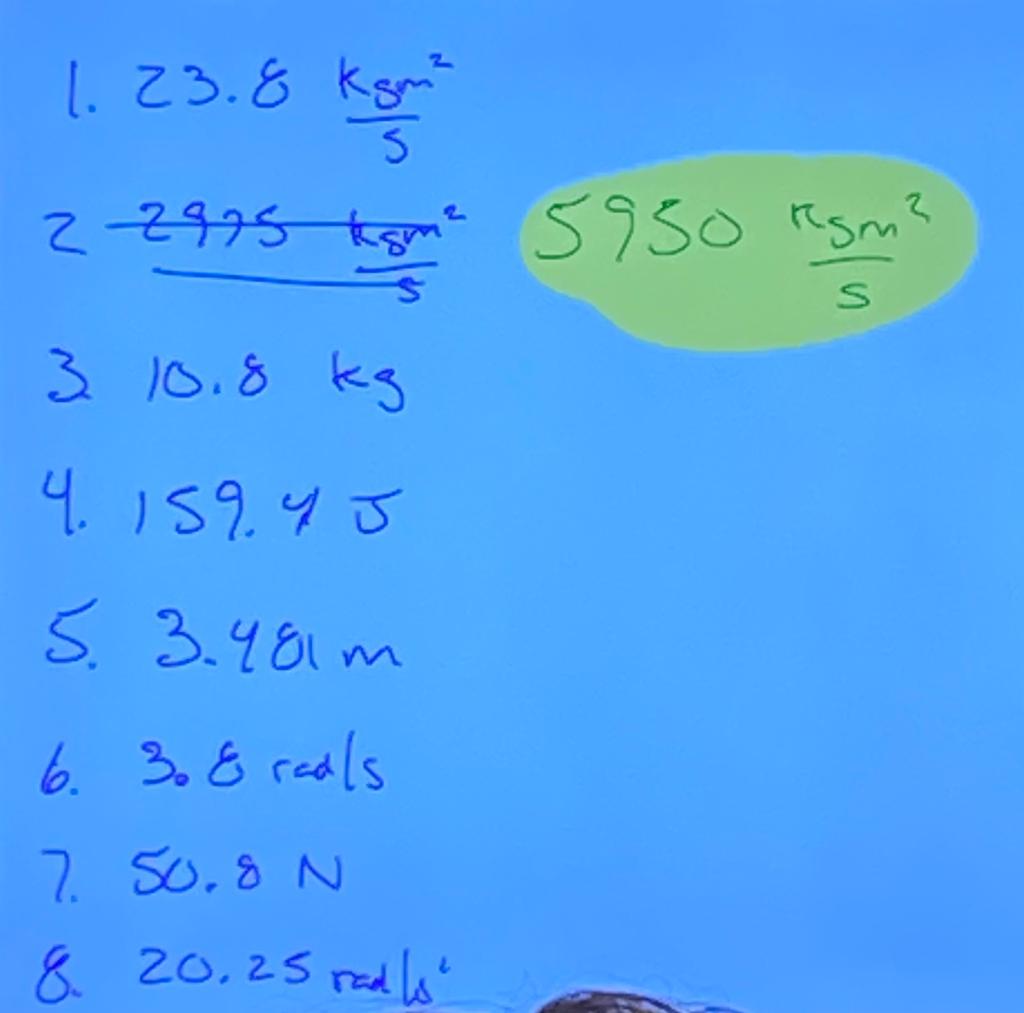 1. 23.8 kgm²/s
2 2975 kgm²/s 5950 kgm²/s
3. 10.8 kg
4. 159.4 J
5. 3.481 m
6. 3.8 rad/s
7. 50.8 N
8. 20.25 rad/s²